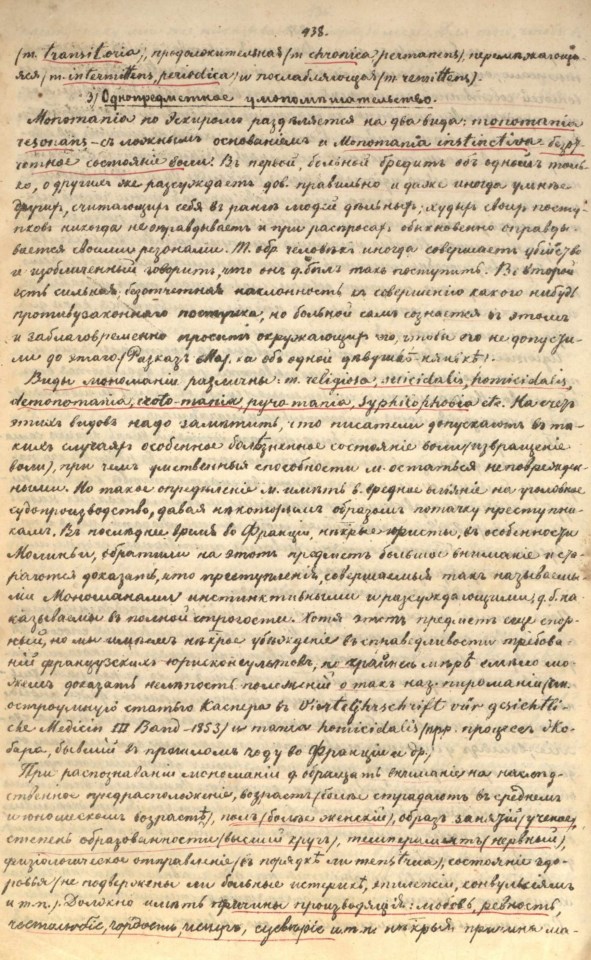 938.
(m. transitoria), продолжительная (m chronica, permanens), перемежающа-
яся (m. intermittens, periodica) и послабляющая (m remittens).
3) Однопредметное умопомѣшательство.
Мономаніа по Эскиролю раздѣляется на два вида: monomania
resonans – съ ложнымъ основаніемъ и Monomania instinctiva безот-
четное состояніе воли. Въ первой, больной бредитъ объ одномъ толь-
ко, о другихъ же разсуждаетъ дов. правильно и даже иногда умнѣе
другихъ, считающихъ себя въ рангѣ людей дѣльныхъ; худыхъ своихъ поступ-
ковъ никогда не оправдываетъ и при распросахъ обыкновенно оправды-
вается своими резонами. Т. обр. человѣкъ иногда совершаетъ убійство
и изобличенный говоритъ, что онъ д. былъ такъ поступить. Въ второй
есть сильная, безотчетная наклонность къ совершенію какого нибудь
противузаконнаго поступка, но больной самъ сознается въ этомъ
и заблаговременно проситъ окружающихъ его, чтобы его не допусти-
ли до этаго (Разказъ объ одной дѣвушкѣ-нянькѣ).
Виды мономаніи различны: m. religiosa, suicidalis, homicidalis,
demonomania, eroto-mania, pyromania, syphilophobia etc. На счетъ
этихъ видовъ надо замѣтить, что писатели допускаютъ въ та-
кихъ случаяхъ особенное болѣзненное состояніе воли (извращеніе
воли), при чемъ умственныя способности м. остаться неповрежден-
ными. Но такое опредѣленіе м. имѣть в. вредное вліяніе на уголовное
судопроизводство, давая нѣкоторымъ образомъ потачку преступни-
камъ. Въ послѣднее время во Франціи, нѣкрые юристы, въ особенности
Молинье, обратили на этотъ предметъ большое вниманіе и ста-
раются доказать, что преступленія, совершаемыя такъ называемы-
ми Мономанами инстинктивными и разсуждающими, д. б. на-
казываемы въ полной строгости. Хотя этотъ предметъ еще спор-
ный, но мы имѣемъ нѣкрое убѣжденіе въ справедливости требова-
ній французскихъ юрисконсультовъ, по крайней мѣрѣ смѣло мо-
жемъ доказать нелѣпость положеній о такъ наз. пироманіи (см.
остроумную статью Каспера въ Vierteljhrschrift für gesichtli-
che Medicin III Band – 1853) и mania homicidalis (прр. процессъ Жо-
бара, бывшій въ прошломъ году во Франціи и др.)
При распознаваніи мономаніи д. обращать вниманіе на наслѣд-
ственное предрасположеніе, возрастъ (болѣе страдаютъ въ среднемъ
и юношескомъ возрастѣ), полъ (болѣе женскій), образъ занятій (ученое),
степень образованности (высшій кругъ), темпераментъ (нервный),
физіологическое отправленіе (въ порядкѣ ли menstrua), состояніе здо-
ровья (не подвержены ли больные истерикѣ, эпилепсіи, конвульсіямъ
и т. п.). Должно имѣть причины производящія: любовь, ревность,
честолюбіе, гордость, испугъ, суевѣріе и т. п. нѣкрыя причины ма-